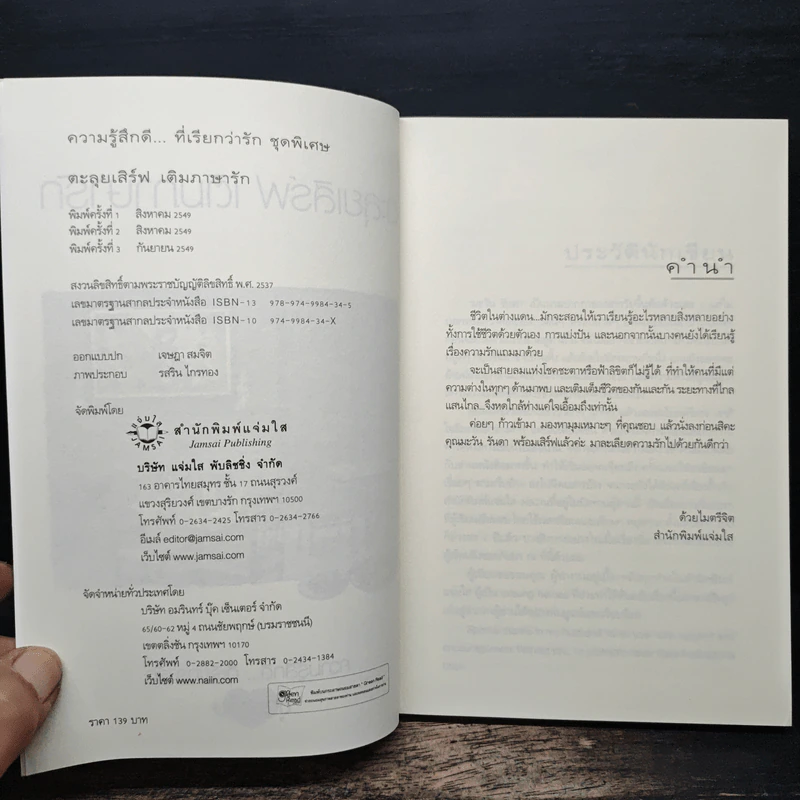 ความรู้สึกดี... ที่เรียกว่ารัก ชุดพิเศษ
ตะลุยเสิร์ฟ เติมภาษารัก
พิมพ์ครั้งที่ 1 สิงหาคม 2549
พิมพ์ครั้งที่ 2 สิงหาคม 2549
พิมพ์ครั้งที่ 3 กันยายน 2549
สงวนลิขสิทธิ์ตามพระราชบัญญัติลิขสิทธิ์ พ.ศ. 2537
เลขมาตรฐานสากลประจำหนังสือ ISBN-13 978-974-9984-34-5
เลขมาตรฐานสากลประจำหนังสือ ISBN-10 974-9984-34-X
ออกแบบปก เจษฎา สมจิต
ภาพประกอบ รสริน ไกรทอง
จัดพิมพ์โดย
แจ่มใส
JAMSAI
สำนักพิมพ์แจ่มใส
Jamsai Publishing
บริษัท แจ่มใส พับลิชชิ่ง จำกัด
163 อาคารไทยสมุทร ชั้น 17 ถนนสุรวงศ์
แขวงสุริยวงศ์ เขตบางรัก กรุงเทพฯ 10500
โทรศัพท์ 0-2634-2425 โทรสาร 0-2634-2766
อีเมล์ editor@jamsai.com
เว็บไซต์ www.jamsai.com
จัดจำหน่ายทั่วประเทศโดย
บริษัท อมรินทร์ บุ๊ค เซ็นเตอร์ จำกัด
65/60-62 หมู่ 4 ถนนชัยพฤกษ์ (บรมราชชนนี)
เขตตลิ่งชัน กรุงเทพฯ 10170
โทรศัพท์ 0-2882-2000 โทรสาร 0-2434-1384
เว็บไซต์ www.naiin.com
ราคา 139 บาท
คำนำ
ชีวิตในต่างแดน...มักจะสอนให้เราเรียนรู้อะไรหลายสิ่งหลายอย่าง
ทั้งการใช้ชีวิตด้วยตัวเอง การแบ่งปัน และนอกจากนั้นบางคนยังได้เรียนรู้
เรื่องความรักแถมมาด้วย
จะเป็นสายลมแห่งโชคชะตาหรือฟ้าลิขิตก็ไม่รู้ได้ ที่ทำให้คนที่มีแต่
ความต่างในทุกๆ ด้านมาพบ และเติมเต็มชีวิตของกันและกัน ระยะทางที่ไกล
แสนไกล...จึงหดใกล้ห่างแค่ใจเอื้อมถึงเท่านั้น
ค่อยๆ ก้าวเข้ามา มองหามุมเหมาะๆ ที่คุณชอบ แล้วนั่งลงก่อนสิคะ
คุณมะวัน รันดา พร้อมเสิร์ฟแล้วค่ะ มาละเลียดความรักไปด้วยกันดีกว่า
ด้วยไมตรีจิต
สำนักพิมพ์แจ่มใส